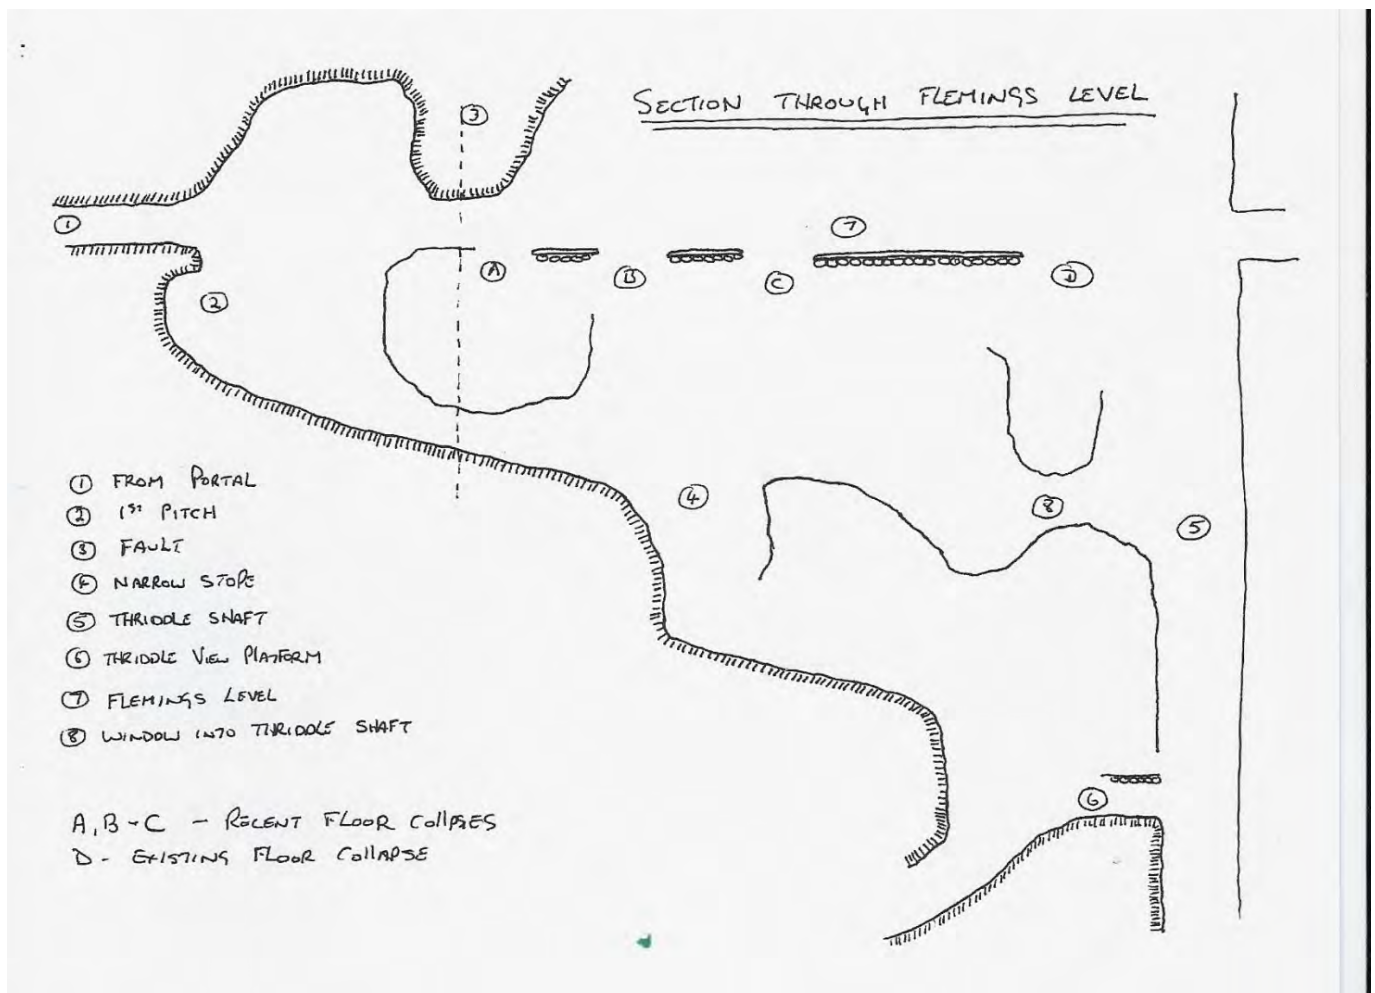 SECTION THROUGH FLEMINGS LEVEL
3
1
7
A
B
C
D
2
4
8
5
6
1 FROM PORTAL
2 1ST PITCH
3 FAULT
4 NARROW STOPE
5 THRIDDLE SHAFT
6 THRIDDLE VIEW PLATFORM
7 FLEMINGS LEVEL
8 WINDOW INTO THRIDDLE SHAFT
A, B + C - RECENT FLOOR COLLAPSES
D - EXISTING FLOOR COLLAPSE